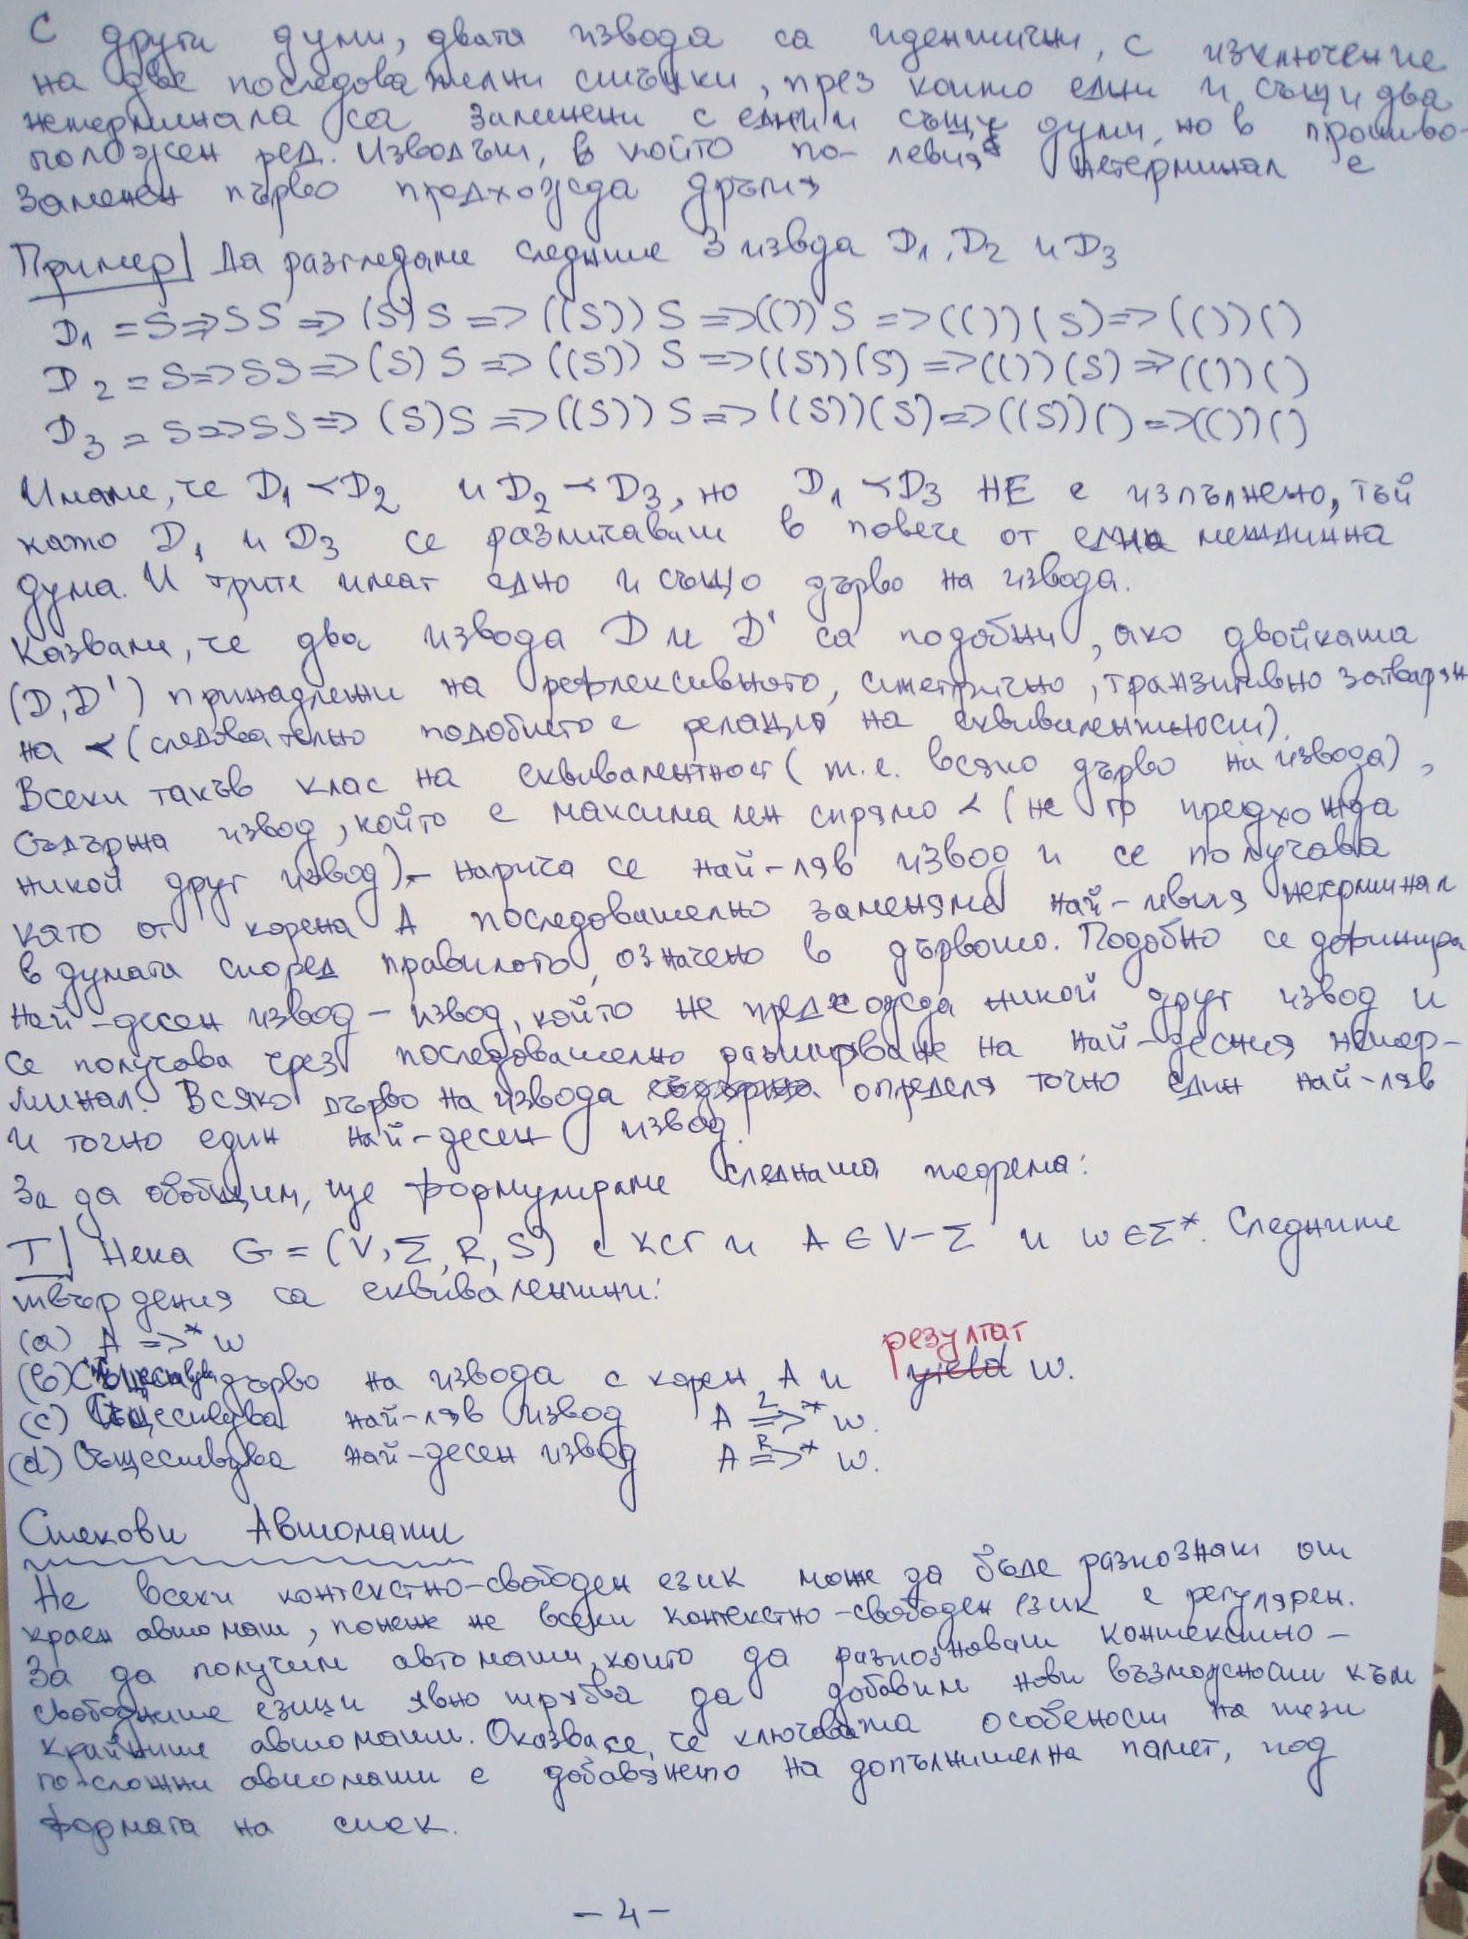 С други думи, двата извода са идентични, с изключение
на две последователни стъпки, през които едни и същи два
нетерминала са заменени с едни и същи думи, но в противо-
положен ред. Изводът, в който по-левия нетерминал е
заменен първо предхожда другия
Пример| Да разгледаме следните 3 извода D1, D2 и D3
D1 = S => SS => (S)S => ((S))S => (())S => (())(S) => (())()
D2 = S => SS => (S)S => ((S))S => ((S))(S) => (())(S) => (())()
D3 = S => SS => (S)S => ((S))S => ((S))(S) => ((S))() => (())()
Имаме, че D1 ≺ D2 и D2 ≺ D3, но D1 ≺ D3 НЕ е изпълнено, тъй
като D1 и D3 се различават в повече от една междинна
дума. И трите имат едно и също дърво на извода.
Казвами, че два извода D и D' са подобни, ако двойката
(D, D') принадлежи на рефлексивното, симетрично, транзитивно затваряне
на ≺ (следователно подобието е релация на еквивалентност).
Всеки такъв клас на еквивалентност (т.е. всяко дърво на извода),
съдържа извод, който е максимален спрямо ≺ (не го предхожда
никой друг извод) - нарича се най-ляв извод и се получава
като от корена А последователно заменяме най-левия нетерминал
в думата според правилото, означено в дървото. Подобно се дефинира
най-десен извод - извод, който не предхожда никой друг извод и
се получава чрез последователно разширяване на най-десния нетер-
минал. Всяко дърво на извода съдържа определя точно един най-ляв
и точно един най-десен извод.
За да обобщим, ще формулираме следната теорема:
Т| Нека G = (V, Σ, R, S) е КСГ и A ∈ V - Σ и w ∈ Σ*. Следните
твърдения са еквивалентни:
(a) A =>* w
резултат
(b) Съществува дърво на извода с корен A и yield w.
(c) Съществува най-ляв извод A L=>* w.
(d) Съществува най-десен извод A R=>* w.
Стекови Автомати
Не всеки контекстно-свободен език може да бъде разпознат от
краен автомат, понеже не всеки контекстно-свободен език е регулярен.
За да получим автомати, които да разпознават контекстно-
свободните езици явно трябва да добавим нови възможности към
крайните автомати. Оказва се, че ключовата особеност на тези
по-сложни автомати е добавянето на допълнителна памет, под
формата на стек.
- 4 -